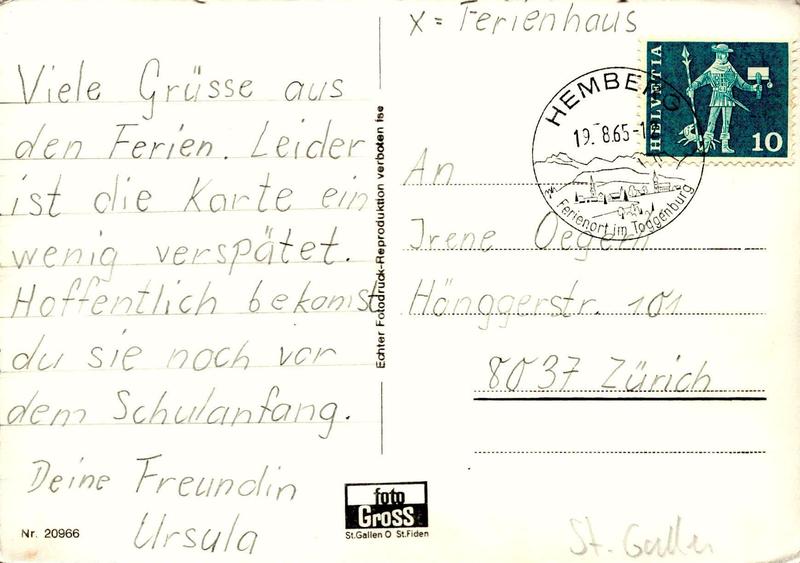 x = Ferienhaus
Viele Grüsse aus
den Ferien. Leider
ist die Karte ein
wenig verspätet.
Hoffentlich bekomst
du sie noch vor
dem Schulanfang.
Deine Freundin
Ursula
Nr. 20966
Echter Fotodruck-Reproduktion verboten Ise
foto
Gross
St.Gallen O St.Fiden
HELVETIA
10
HEMBERG
19.-8.65-1
Ferienort im Toggenburg
An
Irene
Hönggerstr. 101
8037 Zürich
St. Gallen